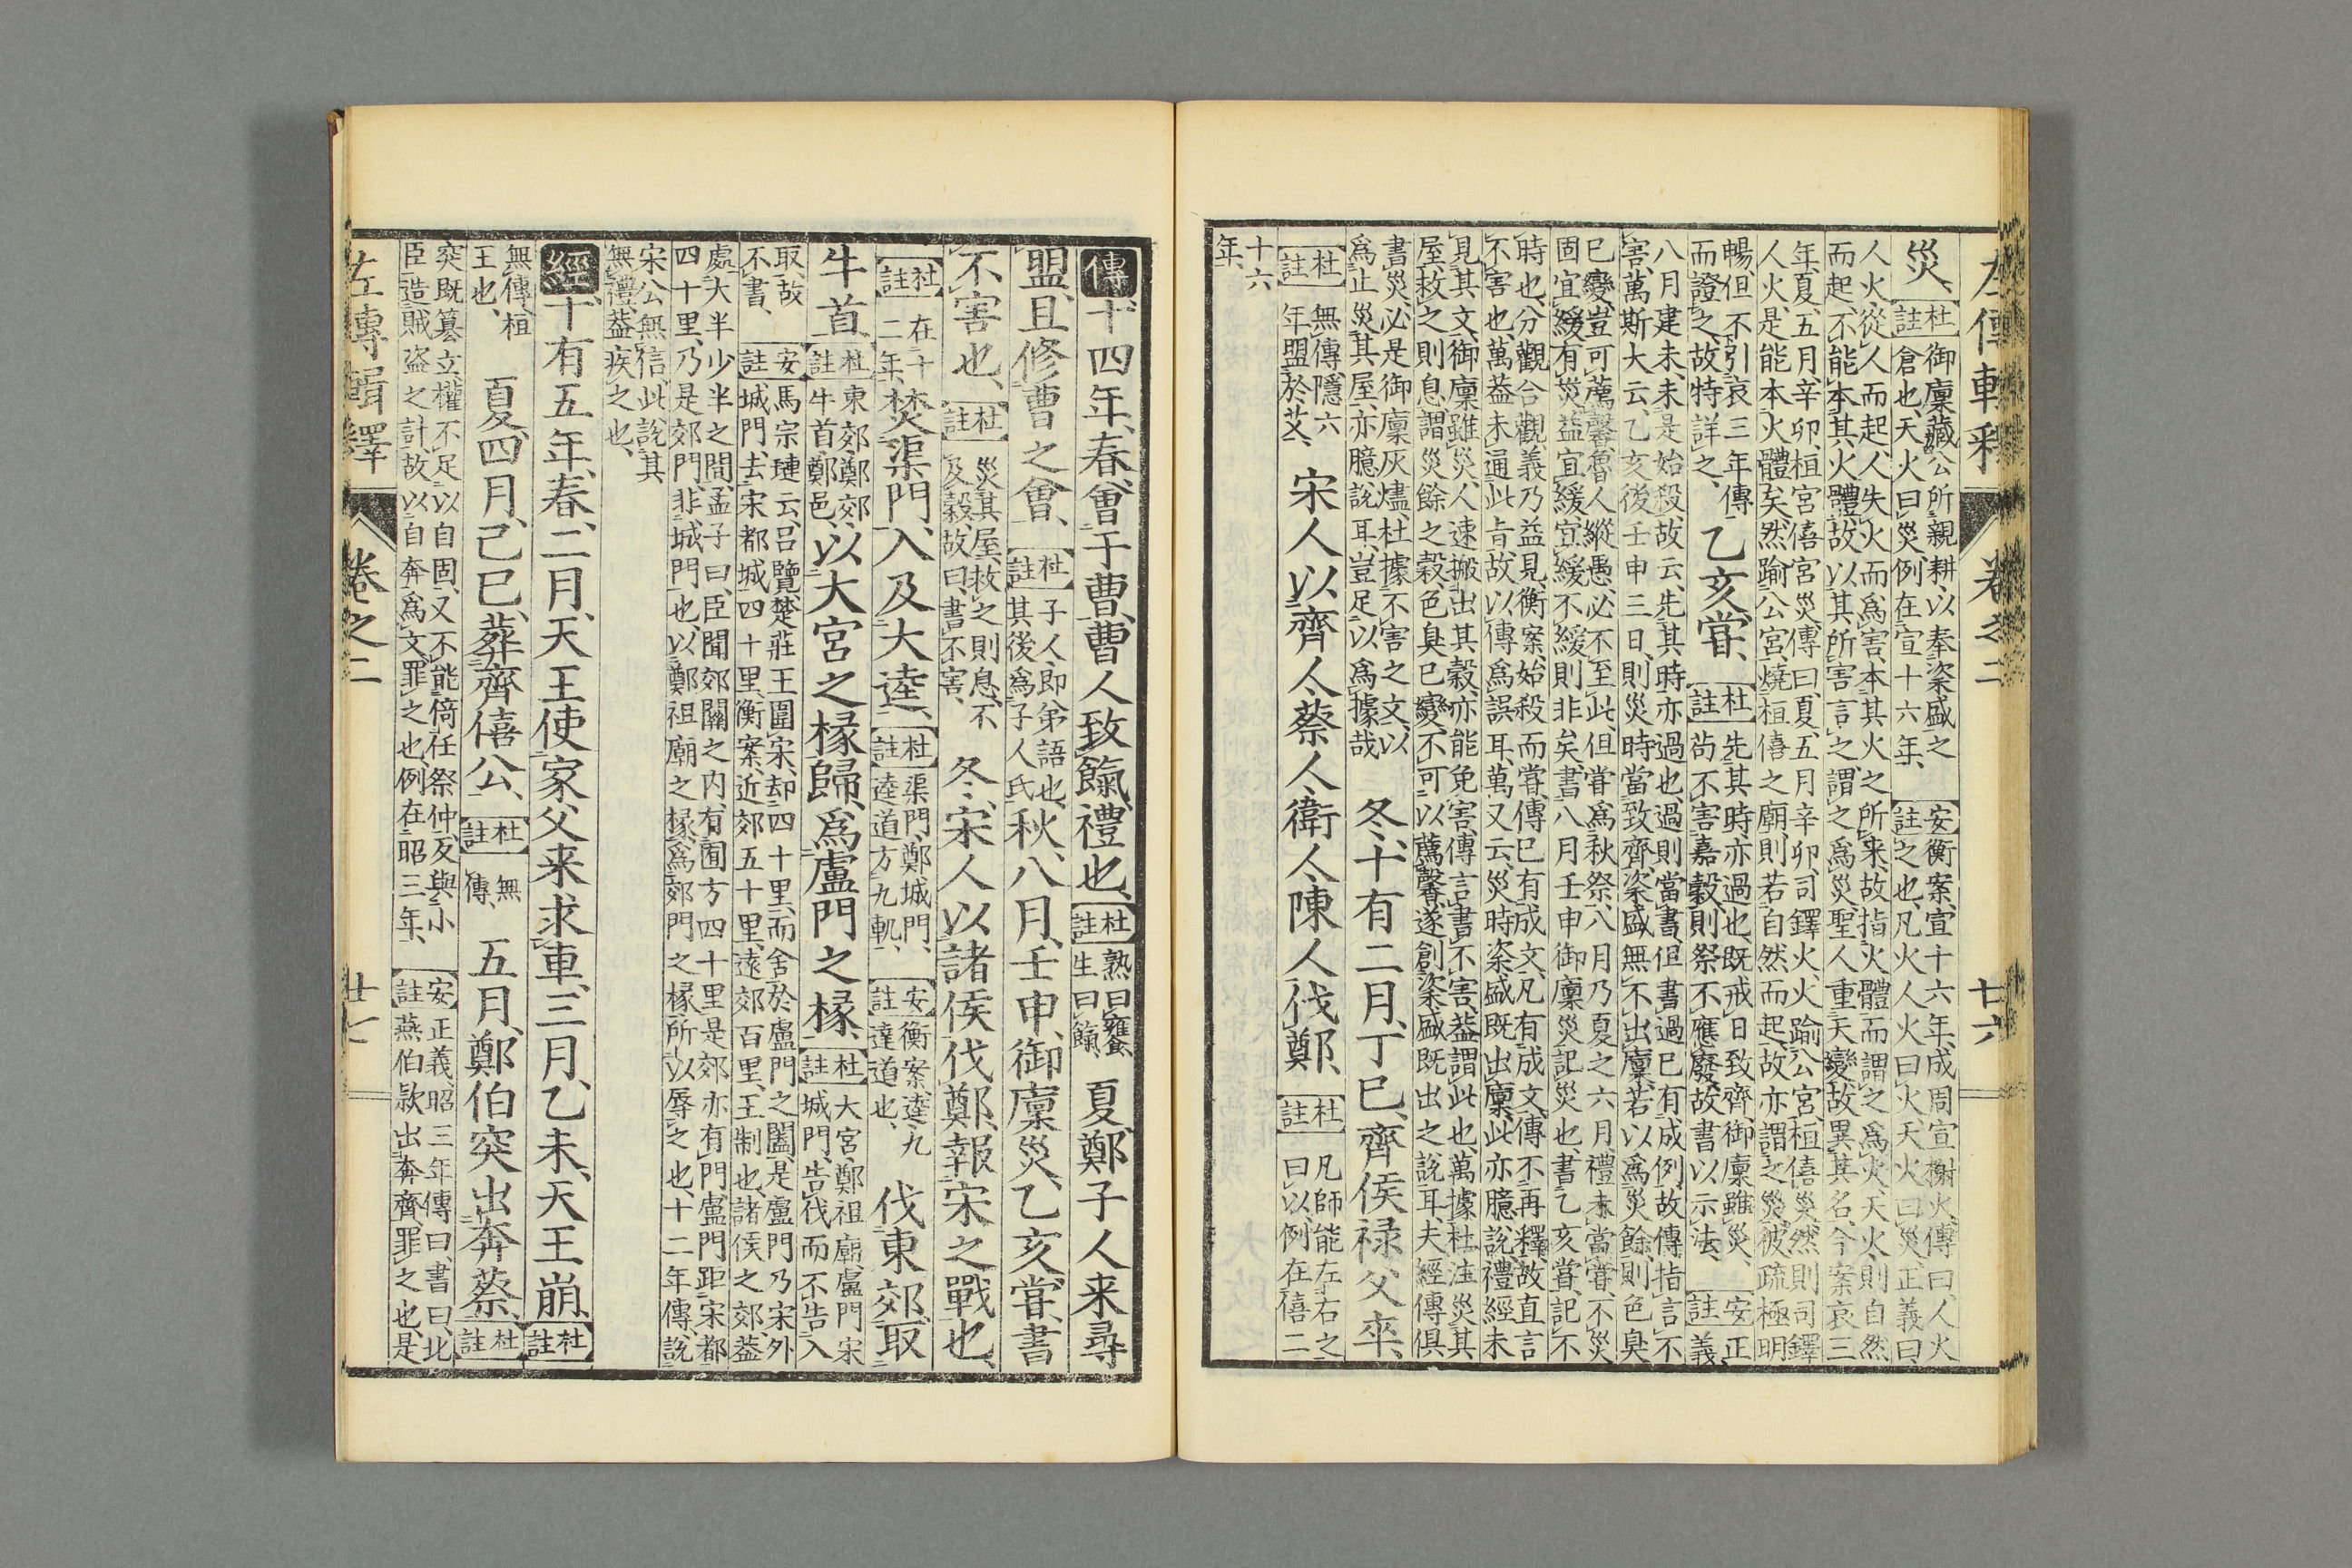 左傳輯釋 卷之二 廿六
災、杜註御廩藏公所親耕、以奉粢盛之倉也、天火曰災、例在宣十六年、安註衡案、宣十六年、成周宣榭火、傳曰、人火之也、凡火、人火曰火、天火曰災、正義曰、
人火、從人而起、人失火而爲害、本其火之所來、故指火體而謂之爲火、天火、則自然而起、不能本其火體、故以其所害言之、謂之爲災、聖人重天變、故異其名、今案哀三
年、夏、五月、辛卯、桓宮僖宮災、傳曰、夏、五月辛卯、司鐸火、火踰公宮、桓僖災、然則司鐸人火、是能本火體矣、然踰公宮、燒桓僖之廟、則若自然而起、故亦謂之災、彼疏極明
暢、但不引哀三年傳而證之、故特詳之、乙亥嘗、杜註先其時、亦過也、既戒日致齊、御廩雖災、苟不害嘉穀、則祭不應廢、故書以示法、安註正義
八月建未、未是始殺、故云、先其時亦過也、過則當書、但書過已有成例、故傳指言不害、萬斯大云、乙亥後壬申三日、則災時當致齊、粢盛無不出廩、若以爲災餘、則色臭
已變、豈可薦馨、魯人縱愚、必不至此、但嘗爲秋祭、八月乃夏之六月、禮未當嘗、不災固宜緩、有災益宜緩、宜緩不緩則非矣、書八月壬申御廩災、記災也、書乙亥嘗、記不
時也、分觀合觀、義乃益見、衡案、始殺而嘗、傳已有成文、凡有成文、傳不再釋、故直言不害也、萬蓋未通此旨、故以傳爲誤耳、萬又云、災時粢盛既出廩、此亦臆說、禮經未
見其文、御廩雖災、人速搬出其穀、亦能免害、傳言書不害、蓋謂此也、萬據杜注災其屋、救之則息、謂災餘之穀、色臭已變、不可以薦馨、遂創粢盛既出之說耳、夫經傳俱
書災、必是御廩灰燼、杜據不害之文、以爲止災其屋、亦臆說耳、豈足以爲據哉、冬、十有二月、丁巳、齊侯禄父卒、
杜註無傳、隱六年、盟於艾、宋人以齊人蔡人衛人陳人伐鄭、杜註凡師能左右之曰以、例在僖二
十六年、
傳十四年、春、會于曹、曹人致餼、禮也、杜註熟曰饔、生曰餼、夏、鄭子人来尋
盟、且修曹之會、杜註子人、即弟語也、其後爲子人氏、秋、八月、壬申、御廩災、乙亥嘗、書
不害也、杜註災其屋、救之則息、不及穀、故曰、書不害、冬、宋人以諸侯伐鄭、報宋之戰也、
杜註在十二年、焚渠門、入及大逵、杜註渠門、鄭城門、逵道方九軌、安註衡案、逵、九達道也、伐東郊、取
牛首、杜註東郊、鄭郊、牛首、鄭邑、以大宮之椽歸、爲盧門之椽、杜註大宮鄭祖廟、盧門宋城門、告伐而不告入
取、故不書、安註馬宗璉云、呂覽、楚莊王圍宋、却四十里、而舍於盧門之闔、是盧門乃宋外城門、去宋都城四十里、衡案、近郊五十里、遠郊百里、王制也、諸侯之郊、蓋
處大半少半之間、孟子曰、臣聞郊關之内、有囿方四十里、是郊亦有門、盧門距宋都四十里、乃是郊門、非城門也、以鄭祖廟之椽、爲郊門之椽、所以辱之也、十二年傳、說
宋公無信、此說其無禮、蓋疾之也、
經十有五年、春、二月、天王使家父来求車、三月、乙未、天王崩、杜註
無傳、桓王也、夏、四月、己巳、葬齊僖公、杜註無傳、五月、鄭伯突出奔蔡、杜註
突既簒立、權不足以自固、又不能倚任祭仲、反與小臣造賊盗之計、故以自奔爲文、罪之也、例在昭三年、安註正義、昭三年傳曰、書曰、北燕伯款出奔齊、罪之也、是
左傳輯釋 卷之二 廿七